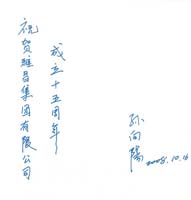 祝贺雅昌集团有限公司
成立十五周年
孙向阳
2008.10.16